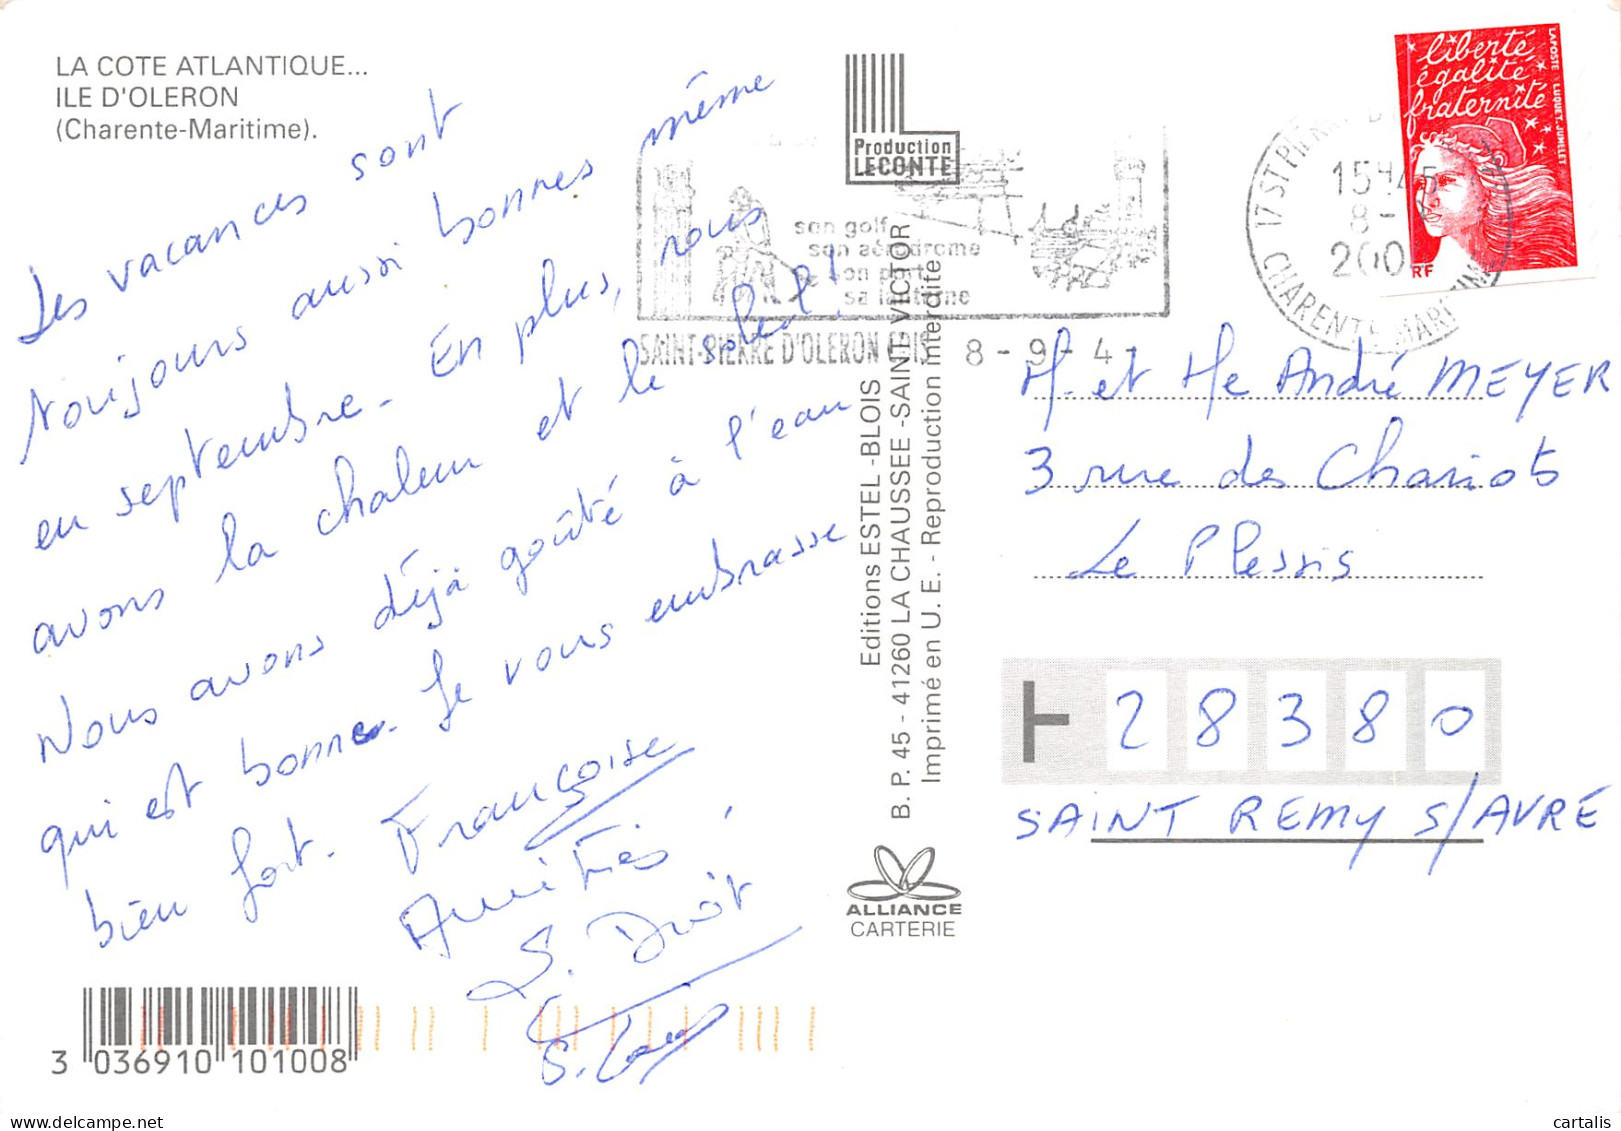 LA COTE ATLANTIQUE...
ILE D'OLERON
(Charente-Maritime).
Les vacances sont
toujours aussi bonnes même
en septembre. En plus, nous
avons la chaleur et le soleil !
Nous avons déjà goûté à l'eau
qui est bonne. Je vous embrasse
bien fort. Françoise
Amitiés
3 036910 101008
Production
LECONTE
son golf
son aérodrome
son port
sa lanterne
SAINT-PIERRE D'OLERON
8 - 9 - 4 -
17 ST PIERRE D
15H45
8 -
200
CHARENTE MARITIME
liberté
égalité
fraternité
LAPOSTE LUQUET-JUMELET
RF
Editions ESTEL -BLOIS
B. P. 45 - 41260 LA CHAUSSEE -SAINT- VICTOR
Imprimé en U. E. - Reproduction interdite
ALLIANCE
CARTERIE
M. et Me André MEYER
3 rue des Chariots
Le Plessis
28380
SAINT REMY S/AVRE
cartalis